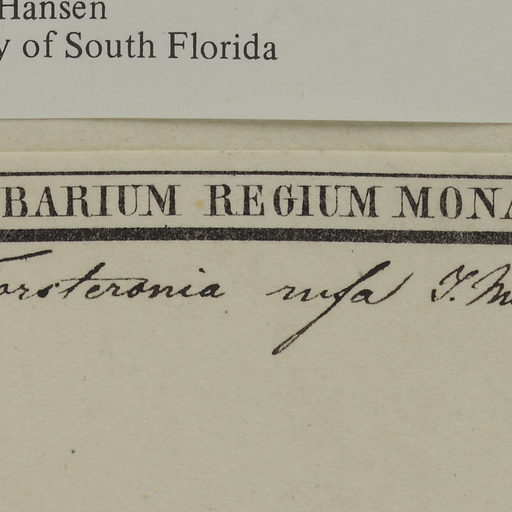 Hansen
y of South Florida
BARIUM REGIUM MONA
orsteronia rufa J. M